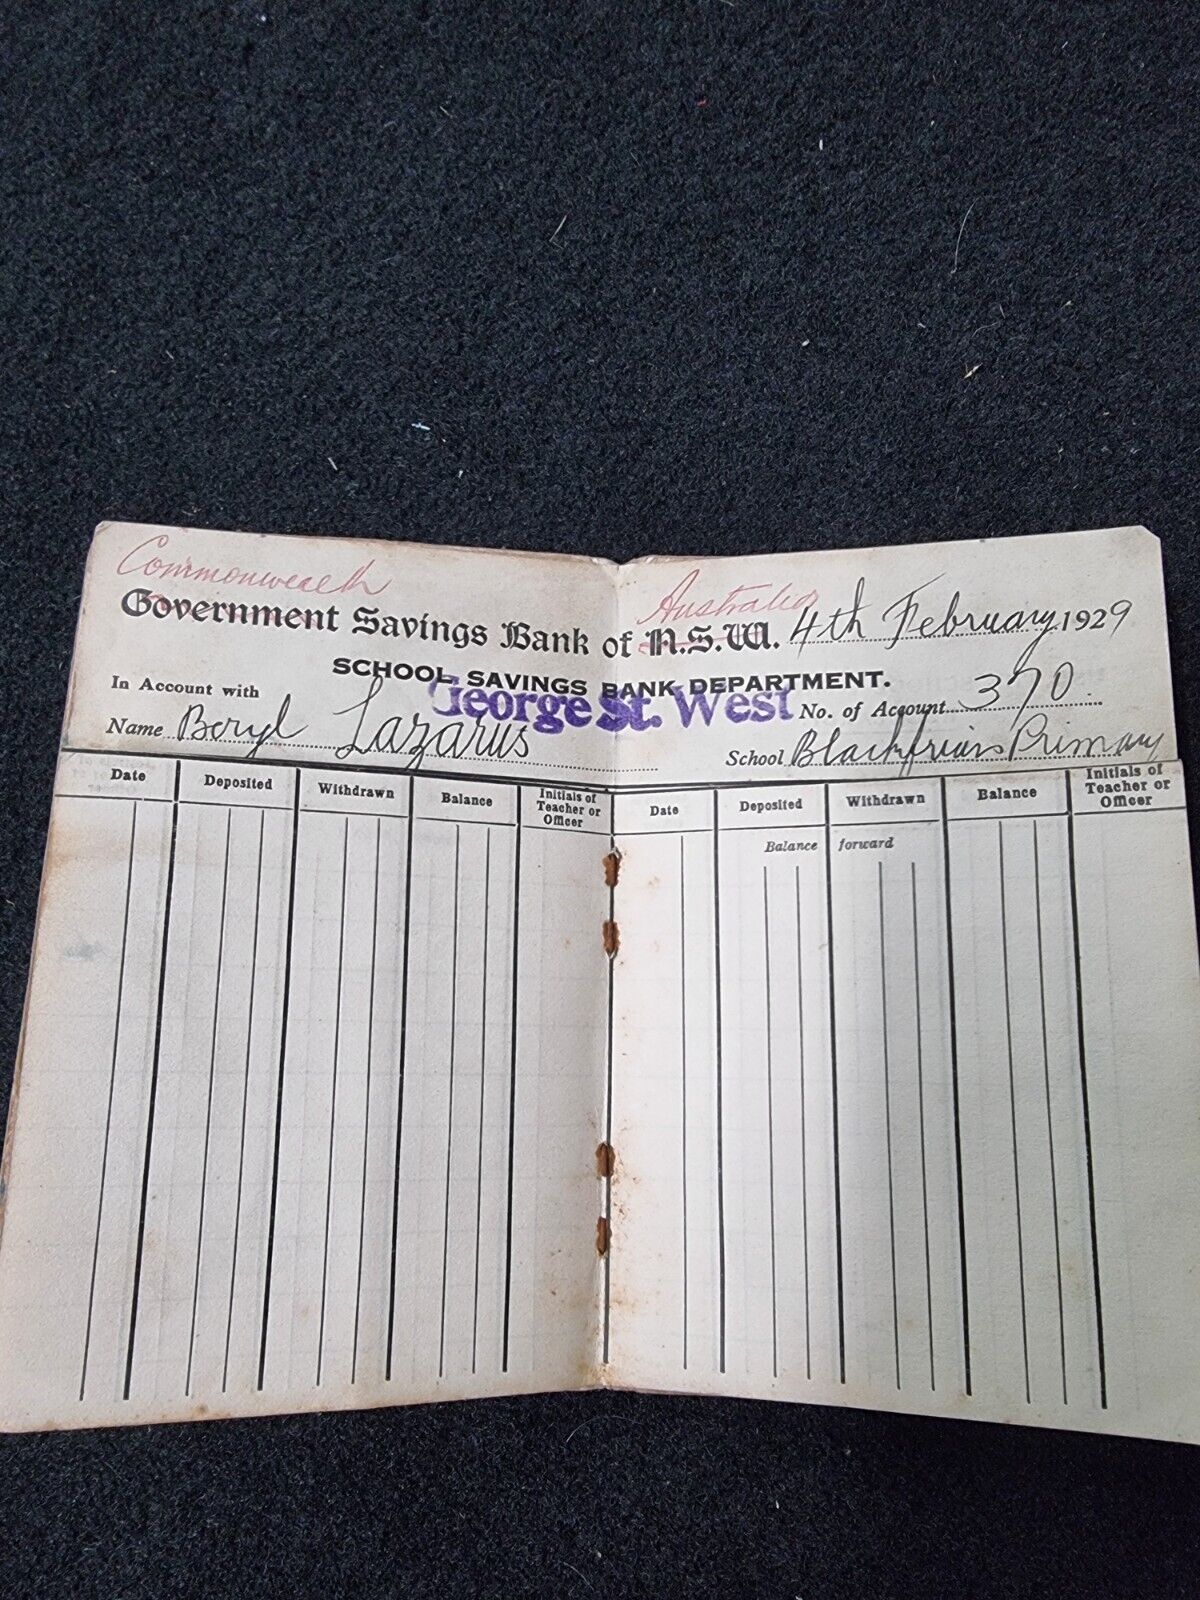 Commonwealth Australia
Government Savings Bank of N.S.W. 4th February 1929
SCHOOL SAVINGS BANK DEPARTMENT.
In Account with George St. West No. of Account 370
Name Beryl Lazarus School Blackfriars Primary
Date Deposited Withdrawn Balance Initials of Teacher or Officer Date Deposited Withdrawn Balance Initials of Teacher or Officer
Balance forward